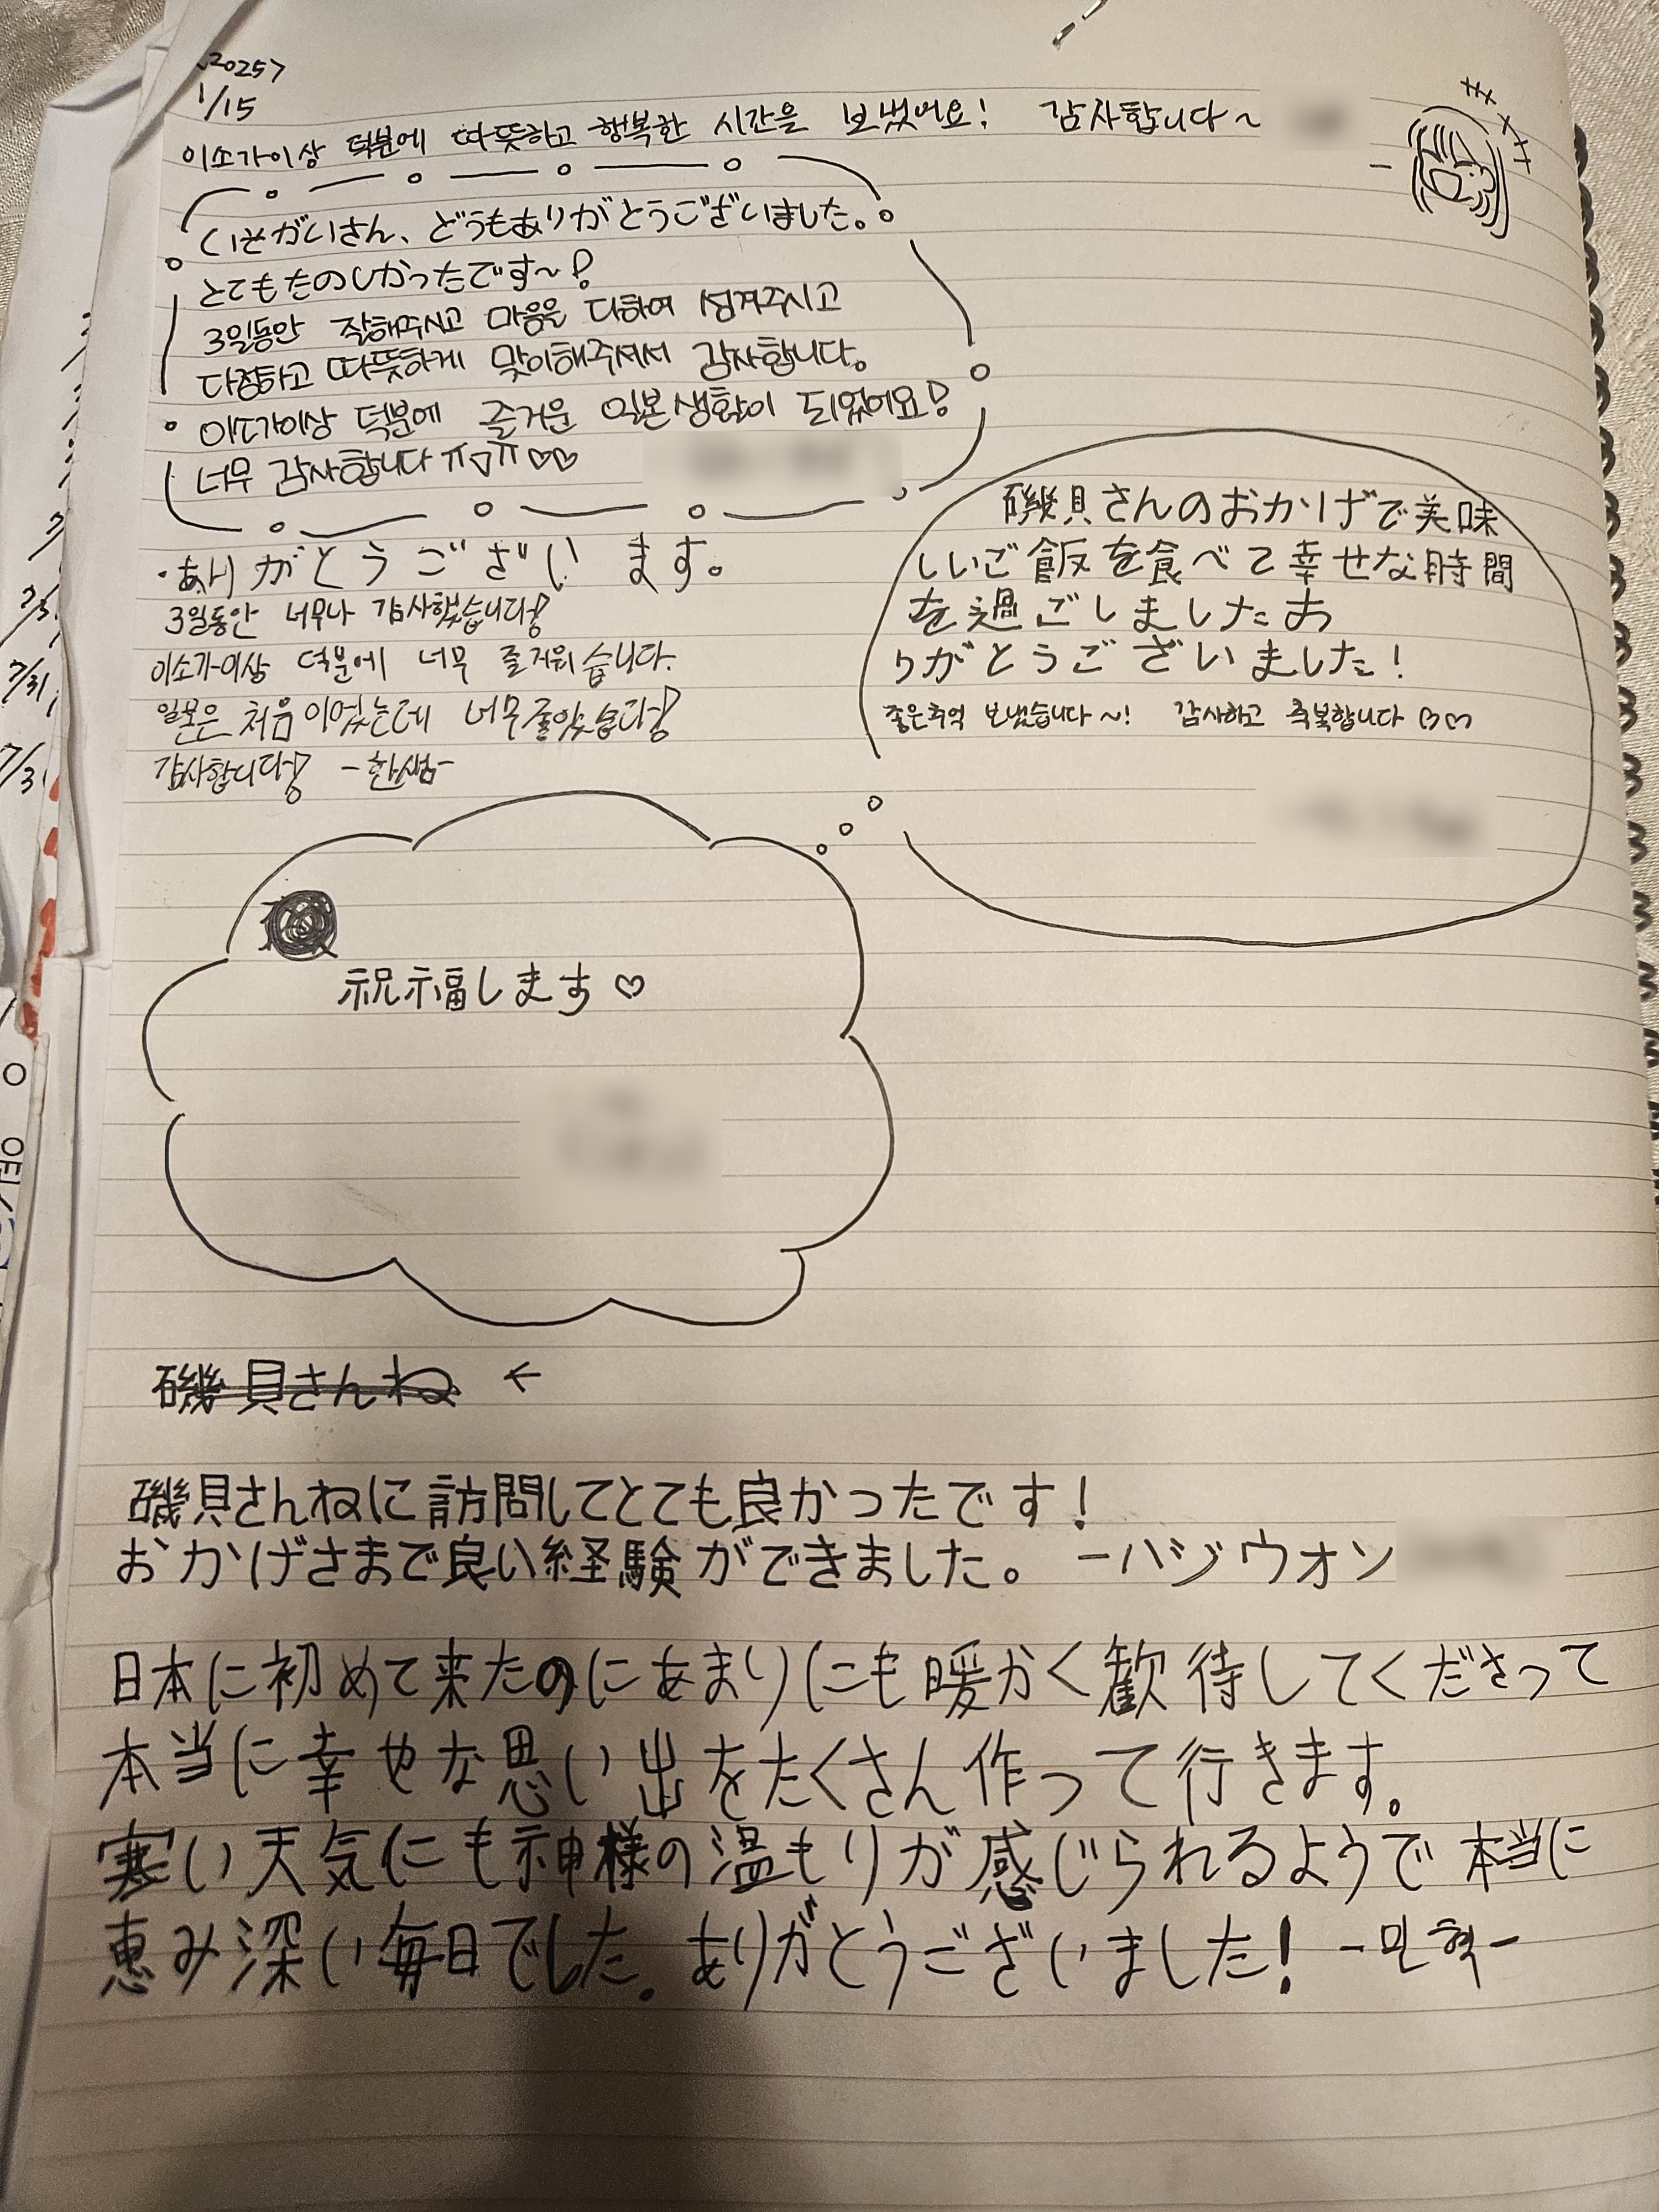 <2025>
1/15
이소가이상 덕분에 따뜻하고 행복한 시간을 보냈어요! 감사합니다~
いそがいさん、どうもありがとうございました。
とてもたのしかったです~!
3일동안 잘해주시고 마음을 다하여 섬겨주시고
다정하고 따뜻하게 맞이해주셔서 감사합니다。
이소가이상 덕분에 즐거운 일본생활이 되었어요!
너무 감사합니다 ㅠㅁㅠ♡♡
・ありがとうございます。
3일동안 너무나 감사했습니당!
이소가이상 덕분에 너무 즐거워습니다.
일본은 처음이였는데 너무좋았습니당!
감사합니당! -한샘-
磯貝さんのおかげで美味
しいご飯を食べて幸せな時間
を過ごしましたあ
りがとうございました!
좋은추억 보냈습니다~! 감사하고 축복합니다 ♡♡
祝福します♡
磯貝さんね ←
磯貝さんねに訪問してとても良かったです!
おかげさまで良い経験ができました。 -ハジウォン
日本に初めて来たのにあまりにも暖かく歓待してくださって
本当に幸せな思い出をたくさん作って行きます。
寒い天気にも神様の温もりが感じられるようで本当に
恵み深い毎日でした。ありがとうございました! -민혁-